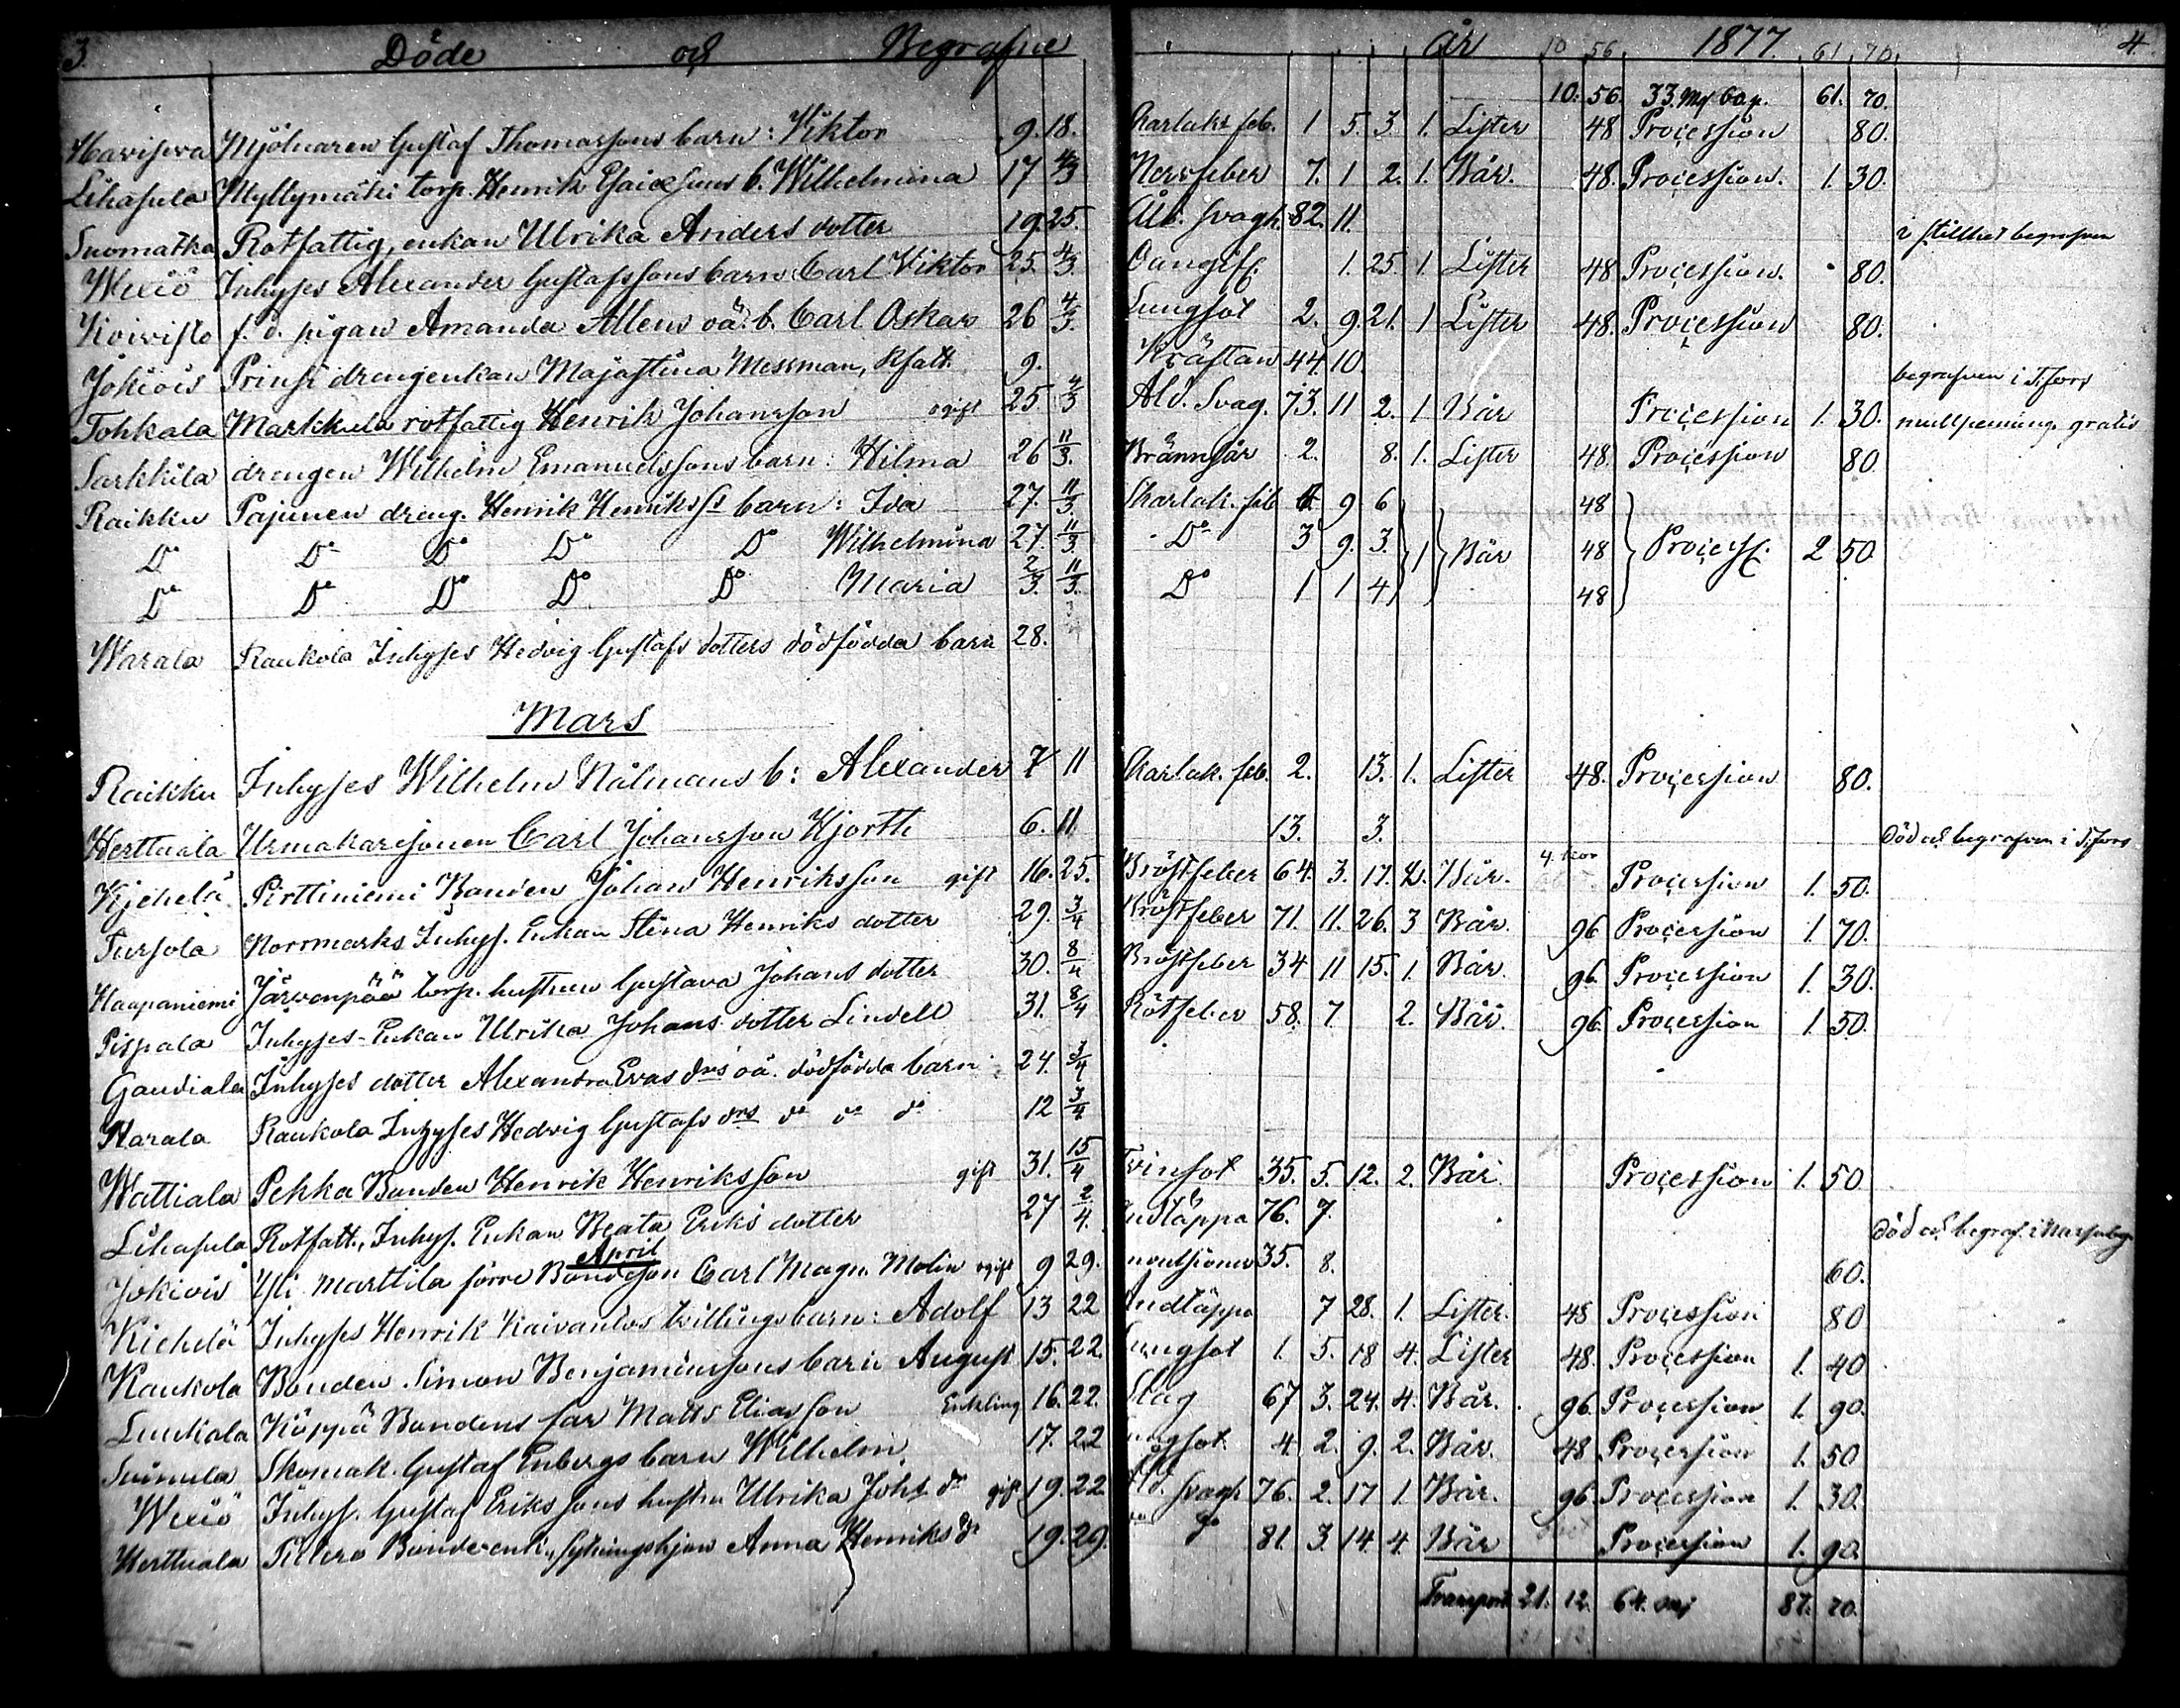 3. Döde och Begrafne år 10 56 1877. 61 70. 4.
10. 56. 33. 61. 70.
Mjölnaren Gustaf Thomassons barn: Viktor 9. 18. Skarlaks feb. 1 5. 3. 1. Lister 48 Procession 80.
Lihasula Myllymäki torp. Henrik b. Wilhelmina 17 4/3 Nervfeber 7. 1 2. 1. Bår. 48. Procession. 1. 30.
Rotfattig, enkan Ulrika Anders dotter 19. 25. Åld. svagh. 82. 11. i stillhet begrafven
Wexiö Inhyses Alexander Gustafssons barn Carl Viktor 25. 4/3. Oangif. 1. 25. 1. Lister 48 Procession. 80.
Koivisto f. d. pigan Amanda Allens oä. b. Carl Oskar 26 4/3. Lungsot 2. 9. 21. 1 Lister 48. Procession 80.
Jokiois drengenkan Majastina Messman, Rfatt. 9. Kräftan 44. 10. begrafven i T.fors
Tohkala Markkula rotfattig Henrik Johansson ogift 25. 4/3 Åld. Svag. 73. 11 2. 1. Bår Procession 1. 30. mullpenning. gratis
Sarkkila drengen Wilhelm Emanuelssons barn: Hilma 26 11/3. Brännsår 2. 8. 1. Lister 48. Procession 80
Raikku Pajunen dreng. Henrik Henrikss barn: Ida 27. 11/3. Skarlak. feb 9 6 48
Do Do Do Do Do Wilhelmina 27. 11/3. Do 3 9. 3. 1 Bår 48 Process. 2 50
Do Do Do Do Do Maria 2/3. 11/3. Do 1 1 4 48
Warala Raukola Inhyses Hedvig Gustafs dotters dödfödda barn 28.
Mars
Raikku Inhyses Wilhelm Nålmans b: Alexander 7 11 Skarlak. feb. 2. 13. 1. Lister 48. Procession 80.
Herttuala Urmakaresonen Carl Johansson Hjorth 6. 11. 13. 3. Död och begrafven i T.fors
Pirttiniemi Bonden Johan Henriksson gift 16. 25. Bröstfeber 64. 3. 17. 2. Bår. Procession 1. 50.
Tursola Norrmarks Inhys. Enkan Stina Henriks dotter 29. 3/4 Bröstfeber 71. 11. 26. 3 Bår. 96 Procession 1. 70.
Haapaniemi Järvenpää torp. hustrun Gustava Johans dotter 30. 8/4 Bröstfeber 34 11 15. 1. Bår. 96. Procession 1. 30.
Pispala Inhyses-Enkan Ulrika Johans dotter Lindell 31. 8/4 Rötfeber 58. 7. 2. Bår. 96. Procession 1. 50.
Gaudiala Inhyses dotter Alexandra Evas drs oä. dödfödda barn 24. 3/4
Warala Raukola Inhyses Hedvig Gustafs drs do do do 12 3/4
Wattiala Pekka Bonden Henrik Henriksson gift 31. 15/4 Tvinsot 35. 5. 12. 2. Bår. Procession 1. 50
Lihasula Rotfatt., Inhys. Enkan Beata Eriks dotter 27 2/4. Andtäppa 76. 7. Död och begraf. i
April
Jokiois Yli Marttila förre Bondeson Carl Magn. Molin ogift 9 29. 35. 8. 60.
Kichelä Inhyses Henrik Kaivantos tvillingsbarn: Adolf 13 22 Andtäppa 7 28. 1. Lister. 48 Procession 80
Raukola Bonden Simon Benjaminssons barn August 15. 22. Lungsot 1. 5. 18 4. Lister 48. Procession 1. 40
Luukala Köppä Bondens far Matts Eliasson Enkling 16. 22. Slag 67 3. 24. 4. Bår. 96. Procession 1. 90.
Suinula Skomak. Gustaf Enbergs barn Wilhelm. 17. 22 Lungsot 4 2. 9. 2. Bår. 48 Procession 1. 50
Wexiö Inhys. Gustaf Erikssons hustru Ulrika Johs dr gift 19. 22 Åld. svagh 76. 2. 17 1. Bår. 96. Procession 1. 30.
Herttuala Bonde-enk., sytningshjon Anna Henriks dr 19. 29. Do 81. 3. 14. 4. Bår Procession 1. 90.
Transport 21. 12. 64. 87. 20.